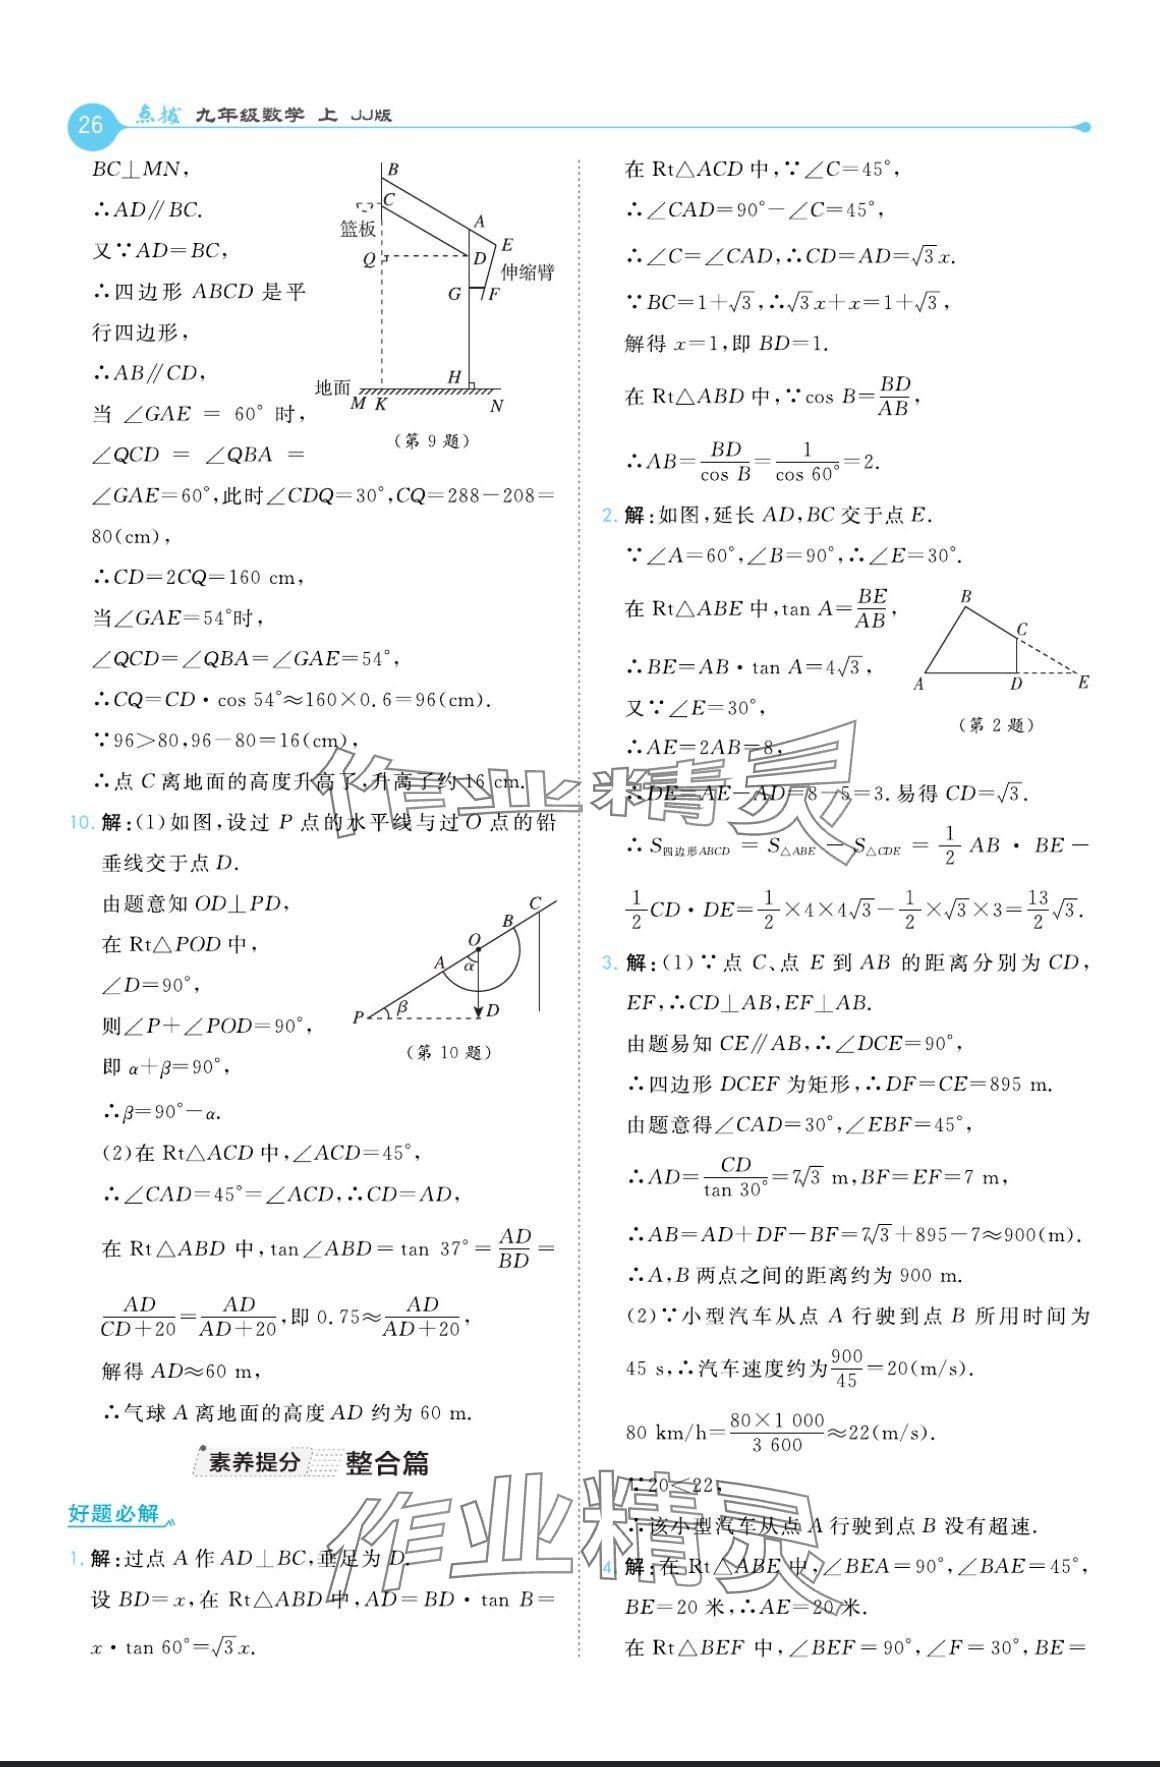 26 点拨 九年级数学 上 JJ版
BC⊥MN,
∴AD∥BC.
又∵AD=BC,
∴四边形 ABCD 是平
行四边形,
∴AB∥CD,
当 ∠GAE = 60° 时,
∠QCD = ∠QBA =
∠GAE=60°,此时∠CDQ=30°,CQ=288-208=
80(cm),
∴CD=2CQ=160 cm,
当∠GAE=54°时,
∠QCD=∠QBA=∠GAE=54°,
∴CQ=CD·cos 54°≈160×0.6=96(cm).
∵96>80,96-80=16(cm),
∴点 C 离地面的高度升高了,升高了约 16 cm.
B
C
篮板
A
E
Q
D
伸缩臂
G
F
H
地面
M K
N
(第 9 题)
10. 解:(1)如图,设过 P 点的水平线与过 O 点的铅
垂线交于点 D.
由题意知 OD⊥PD,
在 Rt△POD 中,
∠D=90°,
则∠P+∠POD=90°,
即 α+β=90°,
∴β=90°-α.
C
B
O
A
α
P
β
D
(第 10 题)
(2)在 Rt△ACD 中,∠ACD=45°,
∴∠CAD=45°=∠ACD,∴CD=AD,
在 Rt△ABD 中,tan∠ABD=tan 37°=AD/BD=
AD/(CD+20)=AD/(AD+20),即 0.75≈AD/(AD+20),
解得 AD≈60 m,
∴气球 A 离地面的高度 AD 约为 60 m.
素养提分 整合篇
好题必解
1. 解:过点 A 作 AD⊥BC,垂足为 D.
设 BD=x,在 Rt△ABD 中,AD=BD·tan B=
x·tan 60°=√3x.
在 Rt△ACD 中,∵∠C=45°,
∴∠CAD=90°-∠C=45°,
∴∠C=∠CAD,∴CD=AD=√3x.
∵BC=1+√3,∴√3x+x=1+√3,
解得 x=1,即 BD=1.
在 Rt△ABD 中,∵cos B=BD/AB,
∴AB=BD/cos B=1/cos 60°=2.
2. 解:如图,延长 AD,BC 交于点 E.
∵∠A=60°,∠B=90°,∴∠E=30°.
在 Rt△ABE 中,tan A=BE/AB,
∴BE=AB·tan A=4√3,
又∵∠E=30°,
∴AE=2AB=8,
B
C
A
D
E
(第 2 题)
∴DE=AE-AD=8-5=3.易得 CD=√3.
∴S四边形ABCD = S△ABE - S△CDE = 1/2 AB·BE-
1/2CD·DE=1/2×4×4√3-1/2×√3×3=13/2√3.
3. 解:(1)∵点 C、点 E 到 AB 的距离分别为 CD,
EF,∴CD⊥AB,EF⊥AB.
由题易知 CE∥AB,∴∠DCE=90°,
∴四边形 DCEF 为矩形,∴DF=CE=895 m.
由题意得∠CAD=30°,∠EBF=45°,
∴AD=CD/tan 30°=7√3 m,BF=EF=7 m,
∴AB=AD+DF-BF=7√3+895-7≈900(m).
∴A,B 两点之间的距离约为 900 m.
(2)∵小型汽车从点 A 行驶到点 B 所用时间为
45 s,∴汽车速度约为900/45=20(m/s).
80 km/h=80×1 000/3 600≈22(m/s).
∵20<22,
∴该小型汽车从点 A 行驶到点 B 没有超速.
4. 解:在 Rt△ABE 中,∠BEA=90°,∠BAE=45°,
BE=20 米,∴AE=20 米.
在 Rt△BEF 中,∠BEF=90°,∠F=30°,BE=
作业精灵
作业精灵